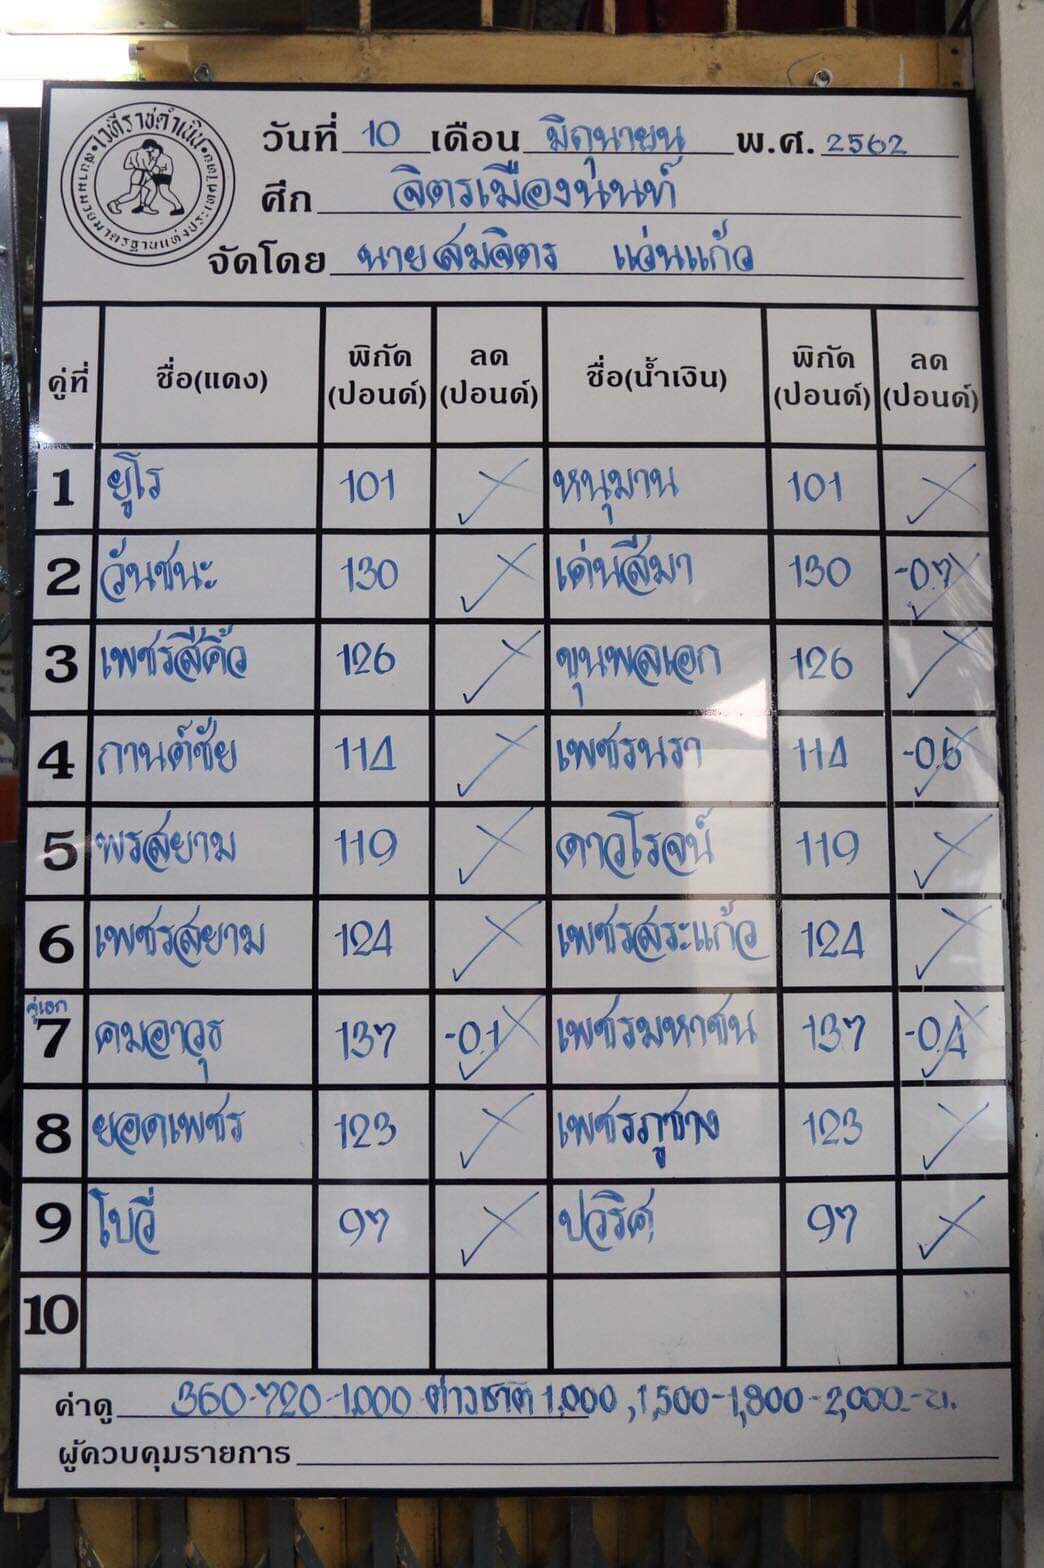 เวทีราชดำเนิน
วันที่ 10 เดือน มิถุนายน พ.ศ. 2562
ศึก จิตรเมืองนนท์
จัดโดย นายสมจิตร แว่นแก้ว
คู่ที่ ชื่อ(แดง) พิกัด (ปอนด์) ลด (ปอนด์) ชื่อ(น้ำเงิน) พิกัด (ปอนด์) ลด (ปอนด์)
1 ยูโร 101 หนุมาน 101
2 วันชนะ 130 เด่นสีมา 130 -0.7
3 เพชรสีคิ้ว 126 ขุนพลเอก 126
4 กานต์ชัย 114 เพชรนรา 114 -0.6
5 พรสยาม 119 ดาวโรจน์ 119
6 เพชรสยาม 124 เพชรสระแก้ว 124
คู่เอก
7 คมอาวุธ 137 -0.1 เพชรมหาชน 137 -0.4
8 ยอดเพชร 123 เพชรภูช้าง 123
9 โบวี่ 97 ปวริศ 97
10
ค่าดู 360-720-1,000 ต่าวชาติ 1,000, 1,500-1,800-2,000.-บ.
ผู้ควบคุมรายการ